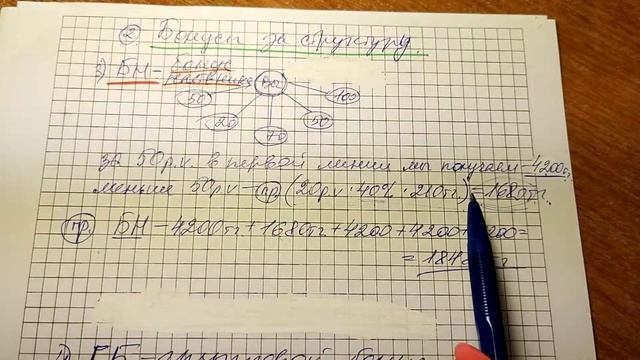 ② Бонусы за структуру.
3) БН - бонус наставника
Вы
50 100
20 50
70
За 50p.v. в первой линии мы получаем 4200тг,
меньше 50p.v - пр (20p.v · 40% · 210тг.) = 1680тг.
пр. БН - 4200тг + 1680тг + 4200 + 4200 + 200 =
= 184 тг
ГБ - групповой